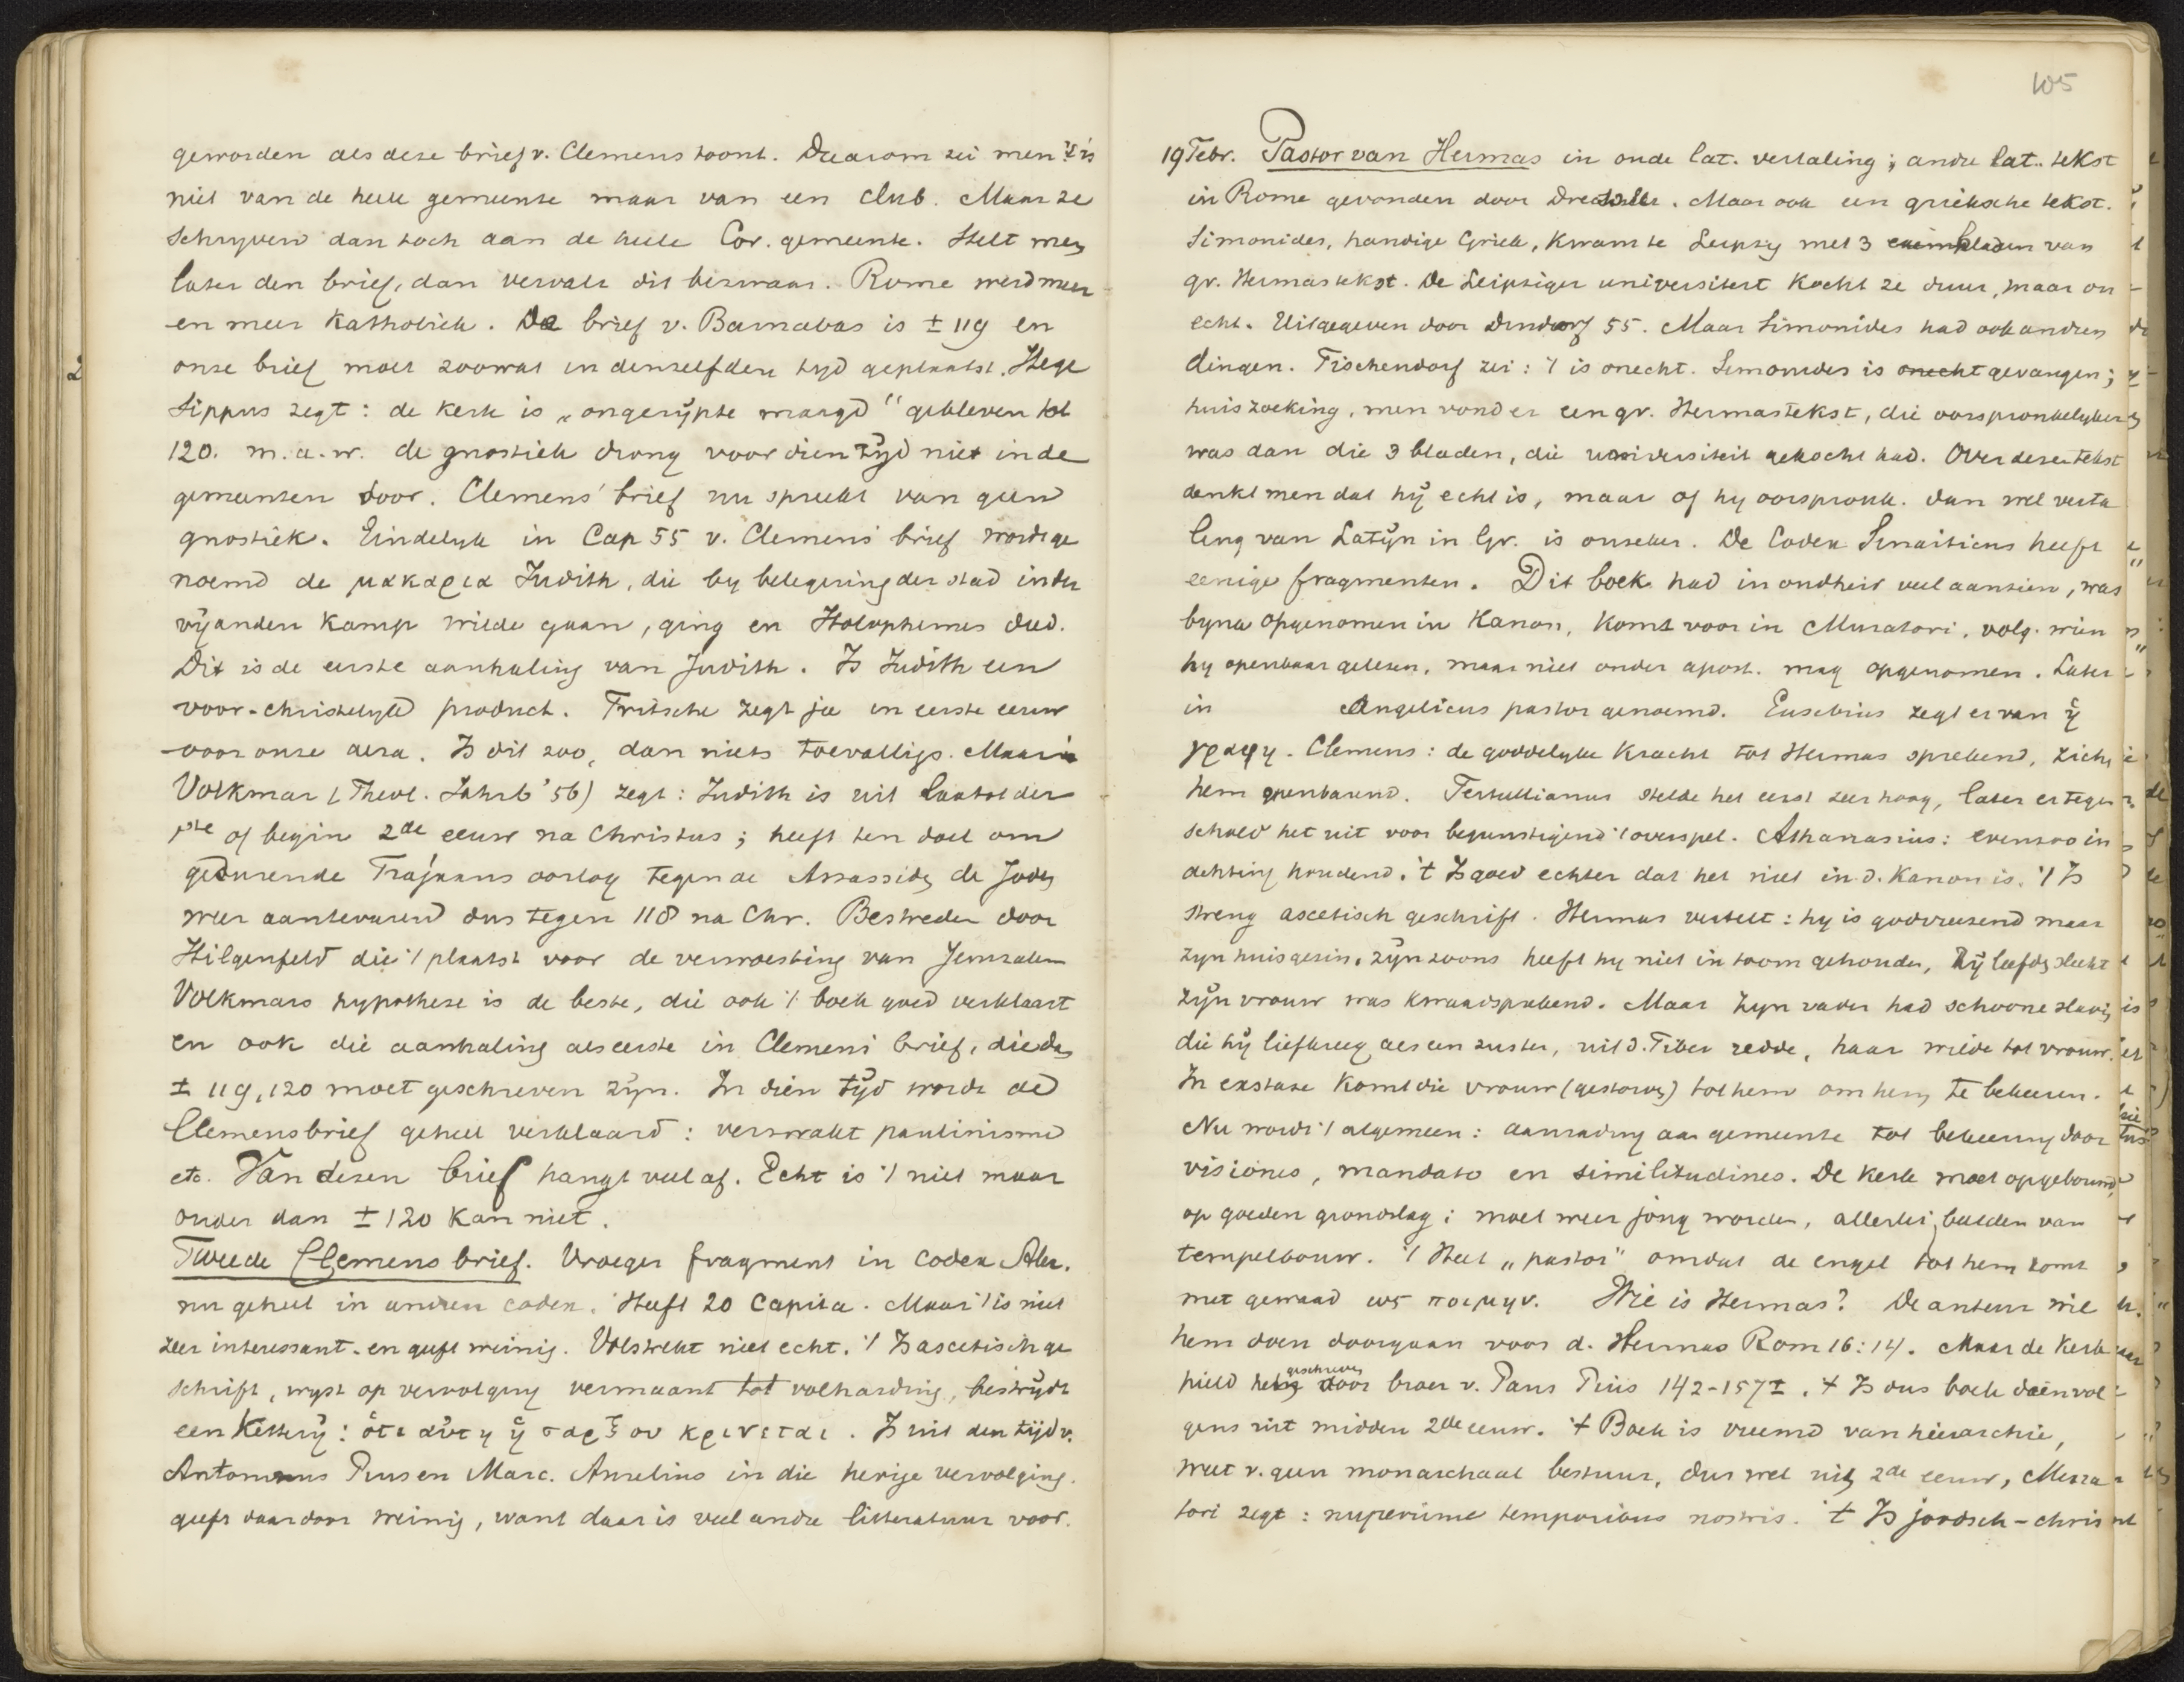 geworden als deze brief v. Clemens toont. Daarom zei men 't is
niet van de heele gemeente maar van een club. Maar ze
schryven dan toch aan de heele Cor. gemeente. Stelt men
later den brief, dan vervalt dit bezwaar. Rome werd meer
en meer Katholiek. De brief v. Barnabas is ± 119 en
onze brief moet zoowat in denzelfden tyd geplaatst. Hege
sippus zegt: de kerk is „ongerypte maagd" gebleven tot
120. m.a.w. de gnostiek drong voor dien tyd niet in de
gemeenten door. Clemens' brief nu spreekt van geen
gnostiek. Eindelyk in Cap 55 v. Clemens brief wordt ge
noemd de μακαρια Judith, die by belegering der stad in der
vyanden kamp wilde gaan, ging en Holophernes dood.
Dit is de eerste aanhaling van Judith. Is Judith een
voor-christelyk product. Fritsche zegt ja in eerste eeuw
voor onze aera. Is dit zoo, dan niets toevalligs. Maar
Volkmar (Theol. Jahrb '56) zegt: Judith is uit laatst der
1ste of begin 2de eeuw na Christus; heeft ten doel om
gedurende Trajaans oorlog tegen de Arsassiden de Joden
weer aantevuren dus tegen 118 na Chr. Bestreden door
Hilgenfeld die 't plaatst voor de verwoesting van Jeruzalem
Volkmars hypothese is de beste, die ook 't boek goed verklaart
en ook die aanhaling als eerste in Clemens brief, die dus
± 119, 120 moet geschreven zyn. In dien tyd wordt de
Clemensbrief geheel verklaard: verzwakt paulinisme
etc. Van dezen brief hangt veel af. Echt is 't niet maar
ouder dan ± 120 kan niet.
Tweede Clemensbrief. Vroeger fragment in codex Alex.
nu geheel in anderen codex. Heeft 20 capita. Maar 't is niet
zeer interessant en geeft weinig. Volstrekt niet echt. 't Is ascetisch ge
schrift, wyst op vervolging vermaant tot volharding, bestrydt
een ketterij: ὅτι αὕτη ἡ σαρξ ου κρινεται. Is uit den tijd v.
Antoninus Pius en Marc. Aurelius in die hevige vervolging.
geeft daardoor weinig, want daar is veel andre litteratuur voor.
105
19 Febr. Pastor van Hermas in oude lat. vertaling; andre lat. tekst
in Rome gevonden door Dressel. Maar ook een grieksche tekst.
Simonides, handige Griek, kwam te Leipzig met 3 bladen van
gr. Hermastekst. De Leipziger universiteit kocht ze duur, maar on
echt. Uitgegeven door Dindorf 55. Maar Simonides had ook andren
dingen. Tischendorf zei: 't is onecht. Simonides is onecht gevangen;
huiszoeking, men vond er een gr. Hermastekst, die oorspronkelyker
was dan die 3 bladen, die universiteit gekocht had. Over dezen tekst
denkt men dat hy echt is, maar of hy oorspronk. dan wel verta
ling van Latyn in Gr. is onzeker. De Codex Sinaiticus heeft
eenige fragmenten. Dit boek had in oudheid veel aanzien, was
byna opgenomen in Kanon, komt voor in Muratori, volg. wien
hy openbaar gelezen, maar niet onder apost. mag opgenomen. Later
in Angelicus pastor genoemd. Eusebius zegt er van ἡ
γραφη. Clemens: de goddelyke kracht tot Hermas sprekend, zich
hem openbarend. Tertullianus stelde het eerst zeer hoog, later er tegen
schold het uit voor begunstigend 't overspel. Athanasius: evenzoo in
achting houdend. 't Is goed echter dat het niet in d. Kanon is. 't Is
streng ascetisch geschrift. Hermas vertelt: hy is godvreezend maar
zyn huisgezin, zyn zoons heeft hy niet in toom gehouden, zy leefden slecht
zyn vrouw was kwaadsprekend. Maar zyn vader had schoone slavin
die hy liefkreeg als een zuster, uit d. Tiber redde, haar wilde tot vrouw.
In exstase komt die vrouw (gestorven) tot hem om hem te bekeeren.
Nu wordt 't algemeen: aanrading aan gemeente tot bekeering door
visiones, mandata en similitudines. De kerk moet opgebouwd
op goeden grondslag; moet weer jong worden, allerlei beelden van
tempelbouw. 't Heet „pastor" omdat de engel tot hem komt
met gewaad ως ποιμην. Wie is Hermas? De auteur wil
hem doen doorgaan voor d. Hermas Rom 16:14. Maar de kerk
hield hem geschreven door broer v. Paus Pius 142-157 ±. 't Is dus boek dienvol
gens uit midden 2de eeuw. 't Boek is vreemd van hierarchie,
weet v. geen monarchaal bestuur, dus wel uit 2de eeuw, Mura
tori zegt: nuperrime temporibus nostris. 't Is joodsch-chris